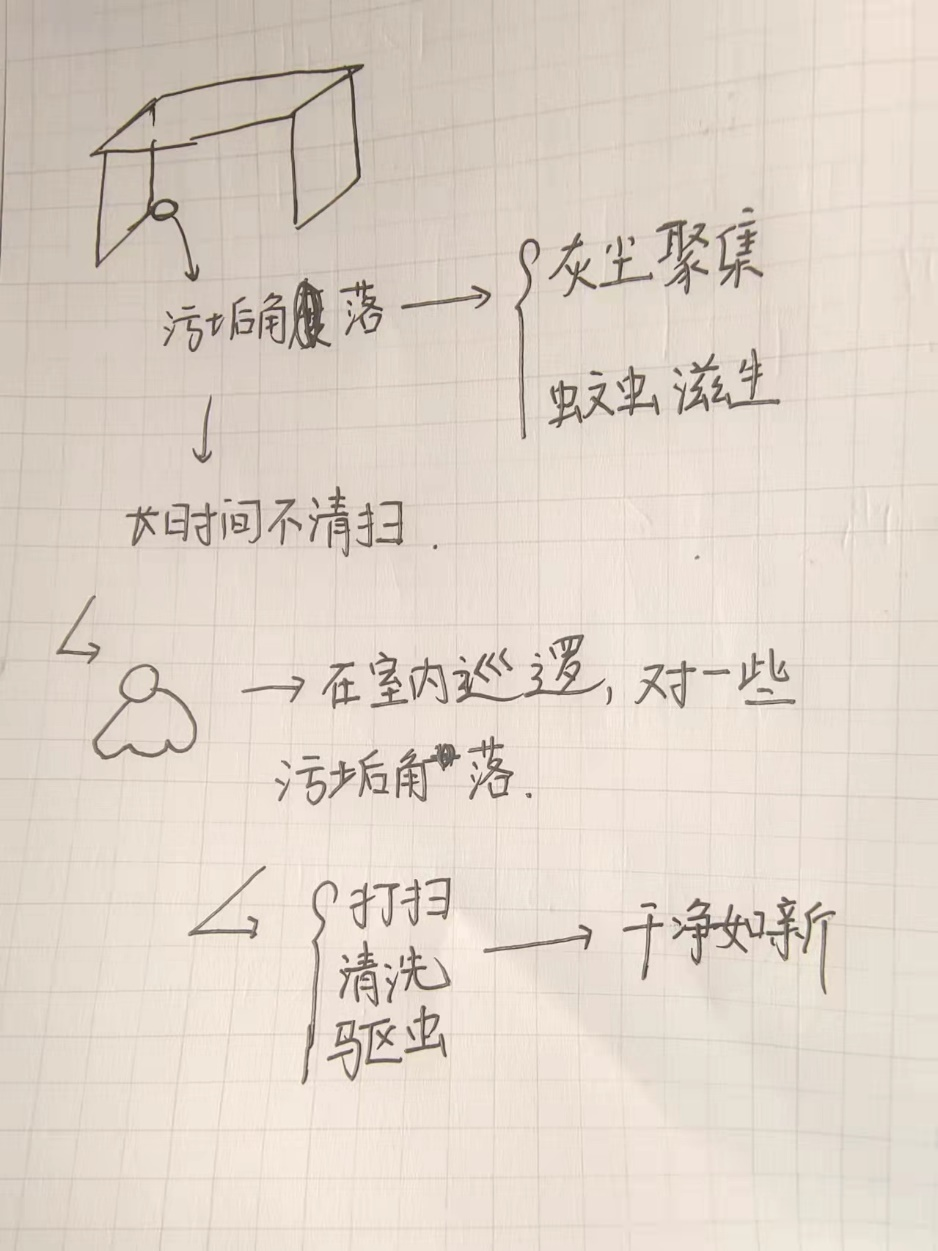 灰尘聚集
污垢角落
蚊虫滋生
长时间不清扫.
在室内巡逻,对一些
污垢角落.
打扫
清洗
驱虫
干净如新